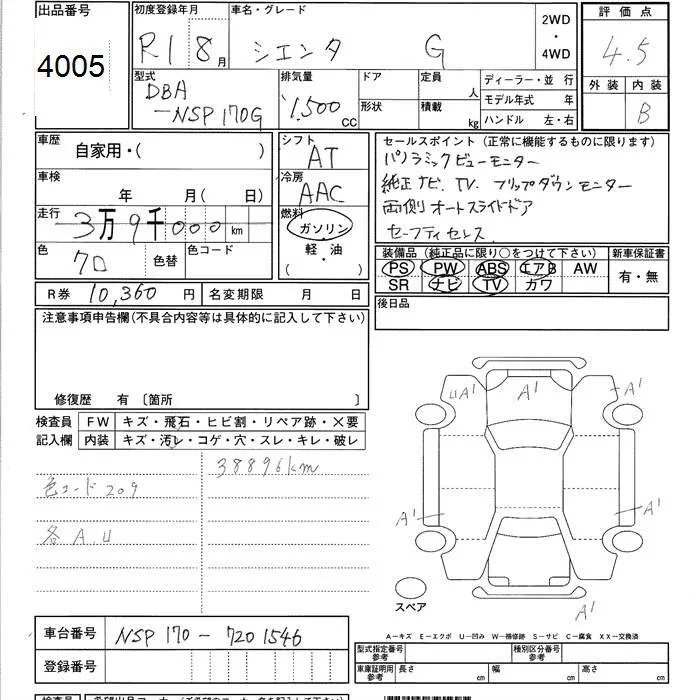 出品番号
4005
初度登録年月
R1 8月
車名・グレード
シエンタ G
2WD
・
4WD
評価点
4.5
外装 内装
B
型式
DBA
-NSP170G
排気量
1,500 cc
ドア
形状
定員
人
積載
kg
ディーラー・並 行
モデル年式 年
ハンドル 左・右
車歴
自家用・( )
車検
年 月( 日)
走行
3万9千000km
色
クロ
色替
色コード
シフト
AT
冷房
AAC
燃料
ガソリン
軽・油
( ・ )
セールスポイント(正常に機能するものに限ります)
パノラミックビューモニター
純正ナビ、TV、フリップダウンモニター
両側オートスライドドア
セーフティセンス
装備品(純正品に限り○をつけて下さい)
新車保証書
PS PW ABS エアB AW
SR ナビ TV カワ
有・無
R券 10,360 円
名変期限 月 日
後日品
注意事項申告欄(不具合内容等は具体的に記入して下さい)
修復歴 有〔箇所 〕
検査員
記入欄
FW キズ・飛石・ヒビ割・リペア跡・×要
内装 キズ・汚レ・コゲ・穴・スレ・キレ・破レ
38896km
色コード209
各A.U
UA1
A1
A1
A1
A1
A1
スペア
A-キズ E-エクボ U-凹み W-補修跡 S-サビ C-腐食 XX-交換済
車台番号
NSP170-7201546
登録番号
型式指定番号
参考
種別区分番号
参考
車庫証明用
参考
長さ cm 幅 cm 高さ cm